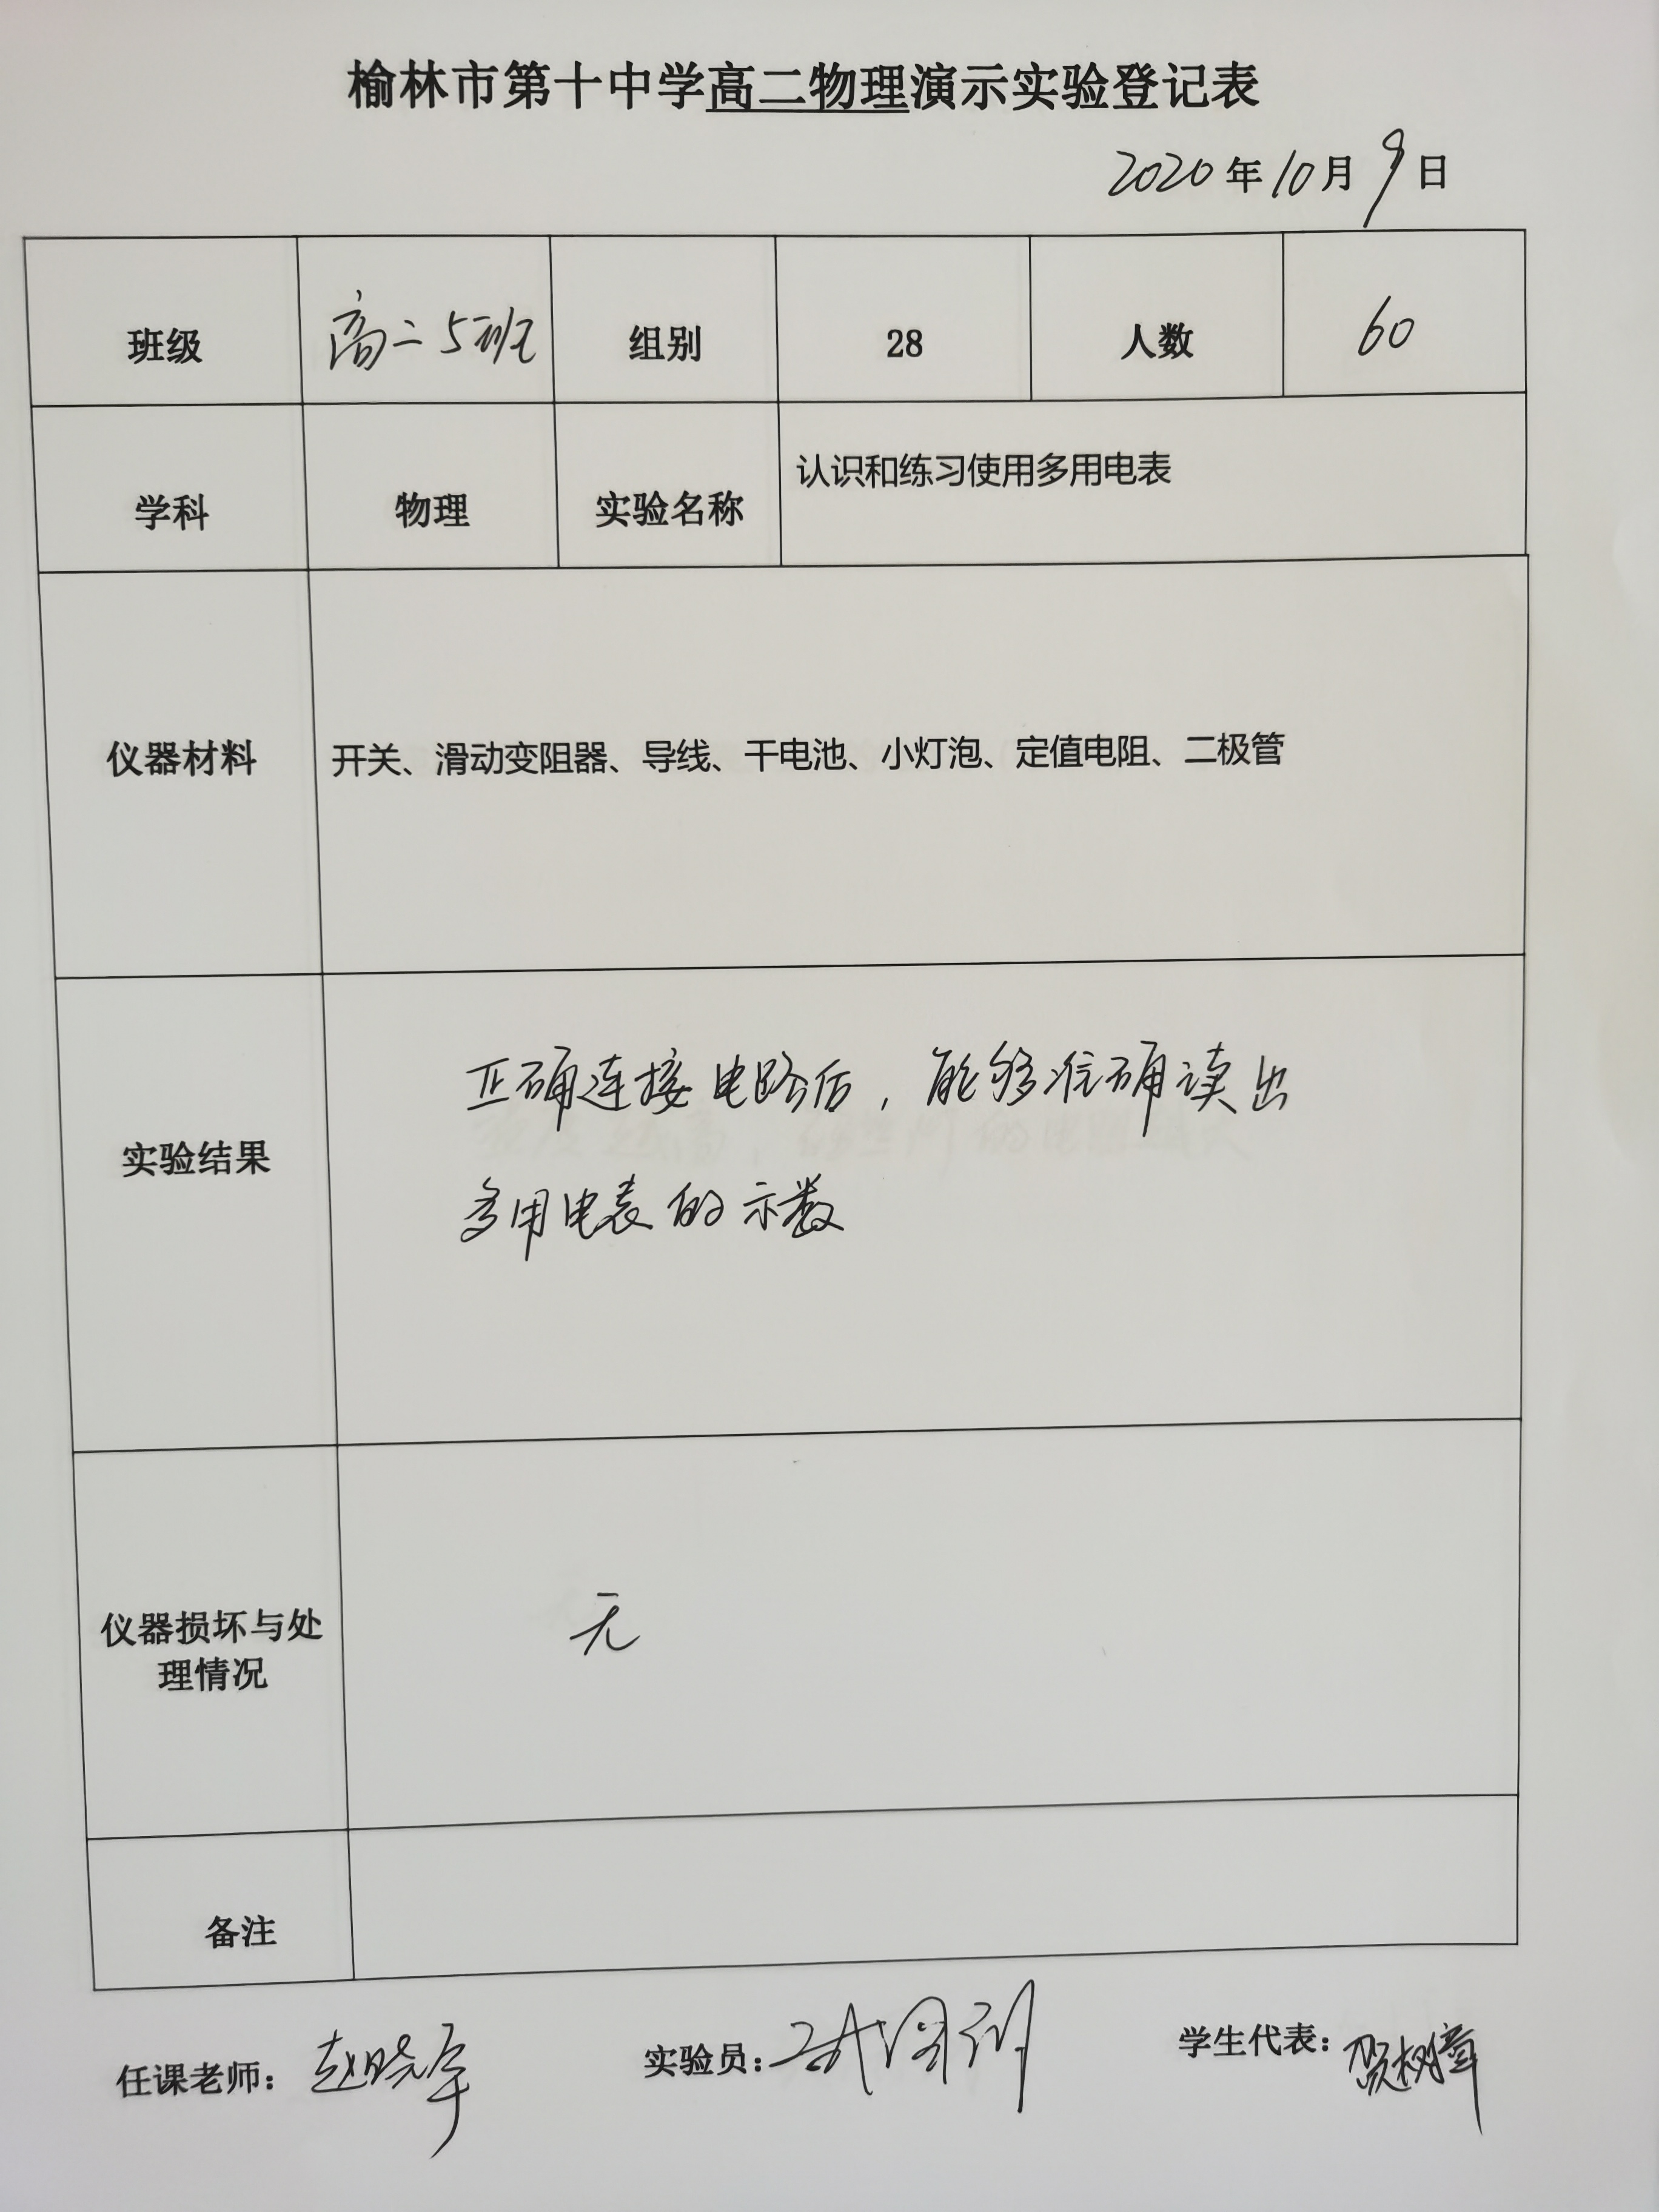 榆林市第十中学高二物理演示实验登记表
2020年10月9日
班级 高二5班 组别 28 人数 60
学科 物理 实验名称 认识和练习使用多用电表
仪器材料 开关、滑动变阻器、导线、干电池、小灯泡、定值电阻、二极管
实验结果
正确连接电路后，能够准确读出
多用电表的示数
仪器损坏与处
理情况
无
备注
任课老师：赵晓宇 实验员： 学生代表：